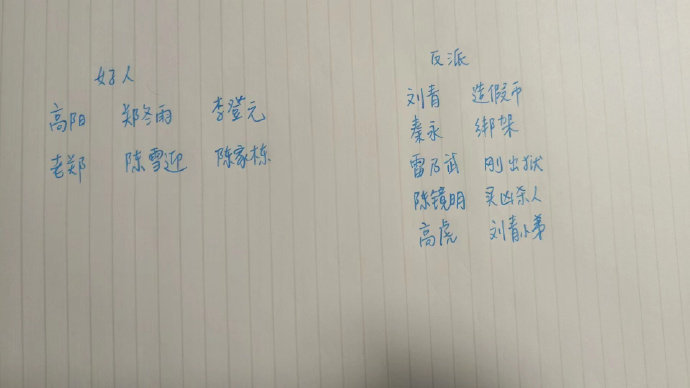 好人
高阳 郑冬雨 李登元
老郑 陈雪迎 陈家栋
反派
刘青 造假币
秦永 绑架
雷乃武 刚出狱
陈镜明 买凶杀人
高虎 刘青小弟